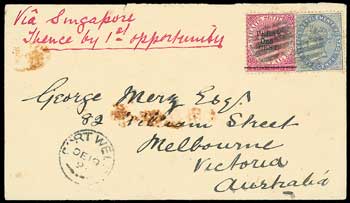 Via Singapore
thence by 1st opportunity
George Merz Esqr.
82 William Street
Melbourne
Victoria
Australia
PORT WELD
DE 19